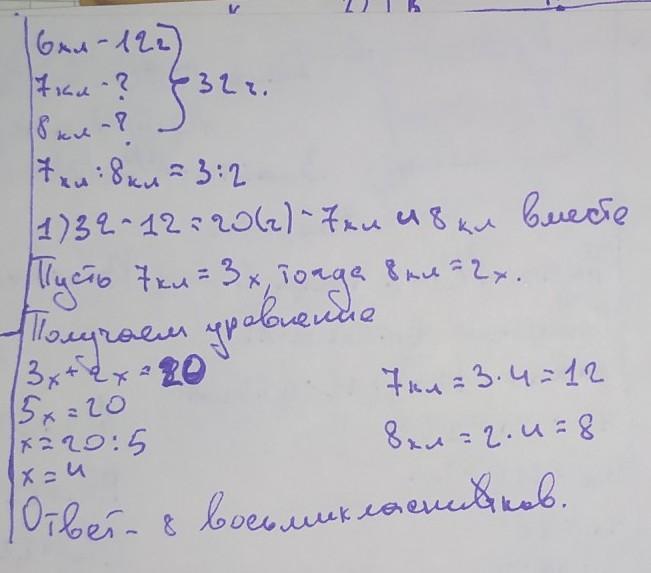 6кл - 12ч
7кл - ?
8кл - ?
32ч.
7кл : 8кл = 3:2
1) 32 - 12 = 20(ч) - 7кл и 8кл вместе
Пусть 7кл = 3x, тогда 8кл = 2x.
Получаем уравнение
3x + 2x = 20
5x = 20
x = 20 : 5
x = 4
7кл = 3 · 4 = 12
8кл = 2 · 4 = 8
Ответ - 8 восьмиклассников.